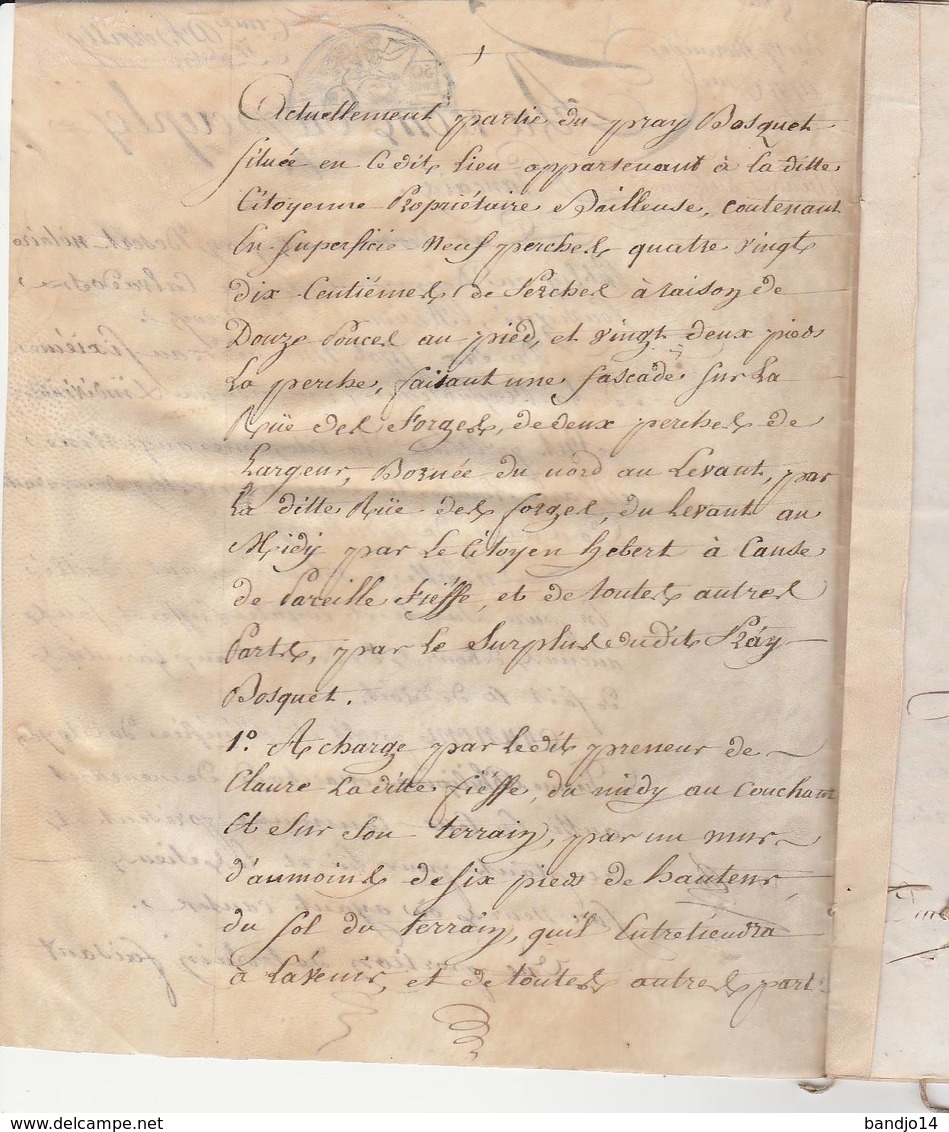 Actuellement partie du pray Bosquet
située en ledit lieu appartenant à la ditte
Citoyenne Propriétaire Bailleuse, contenant
En superficie Neuf perches quatre vingt
dix Centiémes de Perches à raison de
Douze Pouces au pied, et vingt deux pieds
La perche, faisant une fascade sur La
Rüe des Forges, de deux perches de
Largeur, Bornée du nord au Levant, par
La ditte Rüe des forges, du Levant au
Midy par Le Citoyen hebert à Cause
de Pareille Fiéffe, et de toutes autres
Parts, par le Surplus dudit Pray
Bosquet.
1.º A charge par Ledit preneur de
Claure La ditte fiéffe, du midy au Couchant
Et sur son terrain, par un mur
d'aumoins de six pieds de hauteur,
du sol du terrain, qu'il Entretiendra
à L'avenir, et de toutes autres part
bandjo14